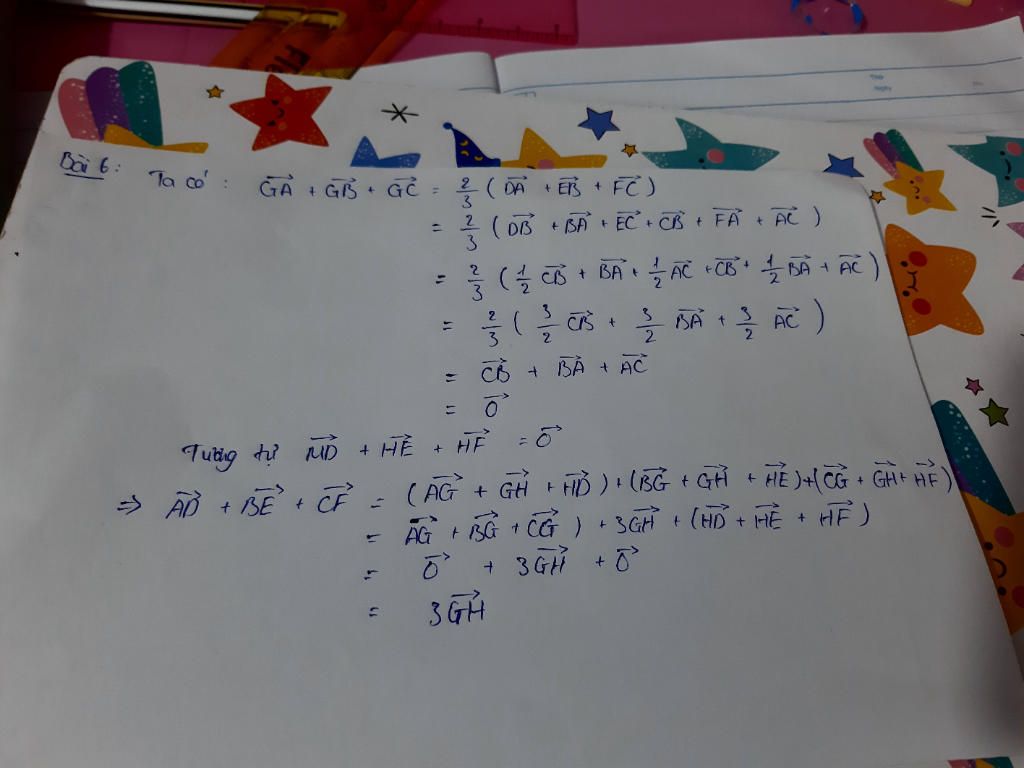 Bài 6: Ta có: $\overrightarrow{GA} + \overrightarrow{GB} + \overrightarrow{GC} = \frac{2}{3}(\overrightarrow{DA} + \overrightarrow{EB} + \overrightarrow{FC})$
$= \frac{2}{3}(\overrightarrow{DB} + \overrightarrow{BA} + \overrightarrow{EC} + \overrightarrow{CB} + \overrightarrow{FA} + \overrightarrow{AC})$
$= \frac{2}{3}(\frac{1}{2}\overrightarrow{CB} + \overrightarrow{BA} + \frac{1}{2}\overrightarrow{AC} + \overrightarrow{CB} + \frac{1}{2}\overrightarrow{BA} + \overrightarrow{AC})$
$= \frac{2}{3}(\frac{3}{2}\overrightarrow{CB} + \frac{3}{2}\overrightarrow{BA} + \frac{3}{2}\overrightarrow{AC})$
$= \overrightarrow{CB} + \overrightarrow{BA} + \overrightarrow{AC}$
$= \overrightarrow{O}$
Tương tự $\overrightarrow{HD} + \overrightarrow{HE} + \overrightarrow{HF} = \overrightarrow{O}$
$\Rightarrow \overrightarrow{AD} + \overrightarrow{BE} + \overrightarrow{CF} = (\overrightarrow{AG} + \overrightarrow{GH} + \overrightarrow{HD}) + (\overrightarrow{BG} + \overrightarrow{GH} + \overrightarrow{HE}) + (\overrightarrow{CG} + \overrightarrow{GH} + \overrightarrow{HF})$
$= \overrightarrow{AG} + \overrightarrow{BG} + \overrightarrow{CG}) + 3\overrightarrow{GH} + (\overrightarrow{HD} + \overrightarrow{HE} + \overrightarrow{HF})$
$= \overrightarrow{O} + 3\overrightarrow{GH} + \overrightarrow{O}$
$= 3\overrightarrow{GH}$